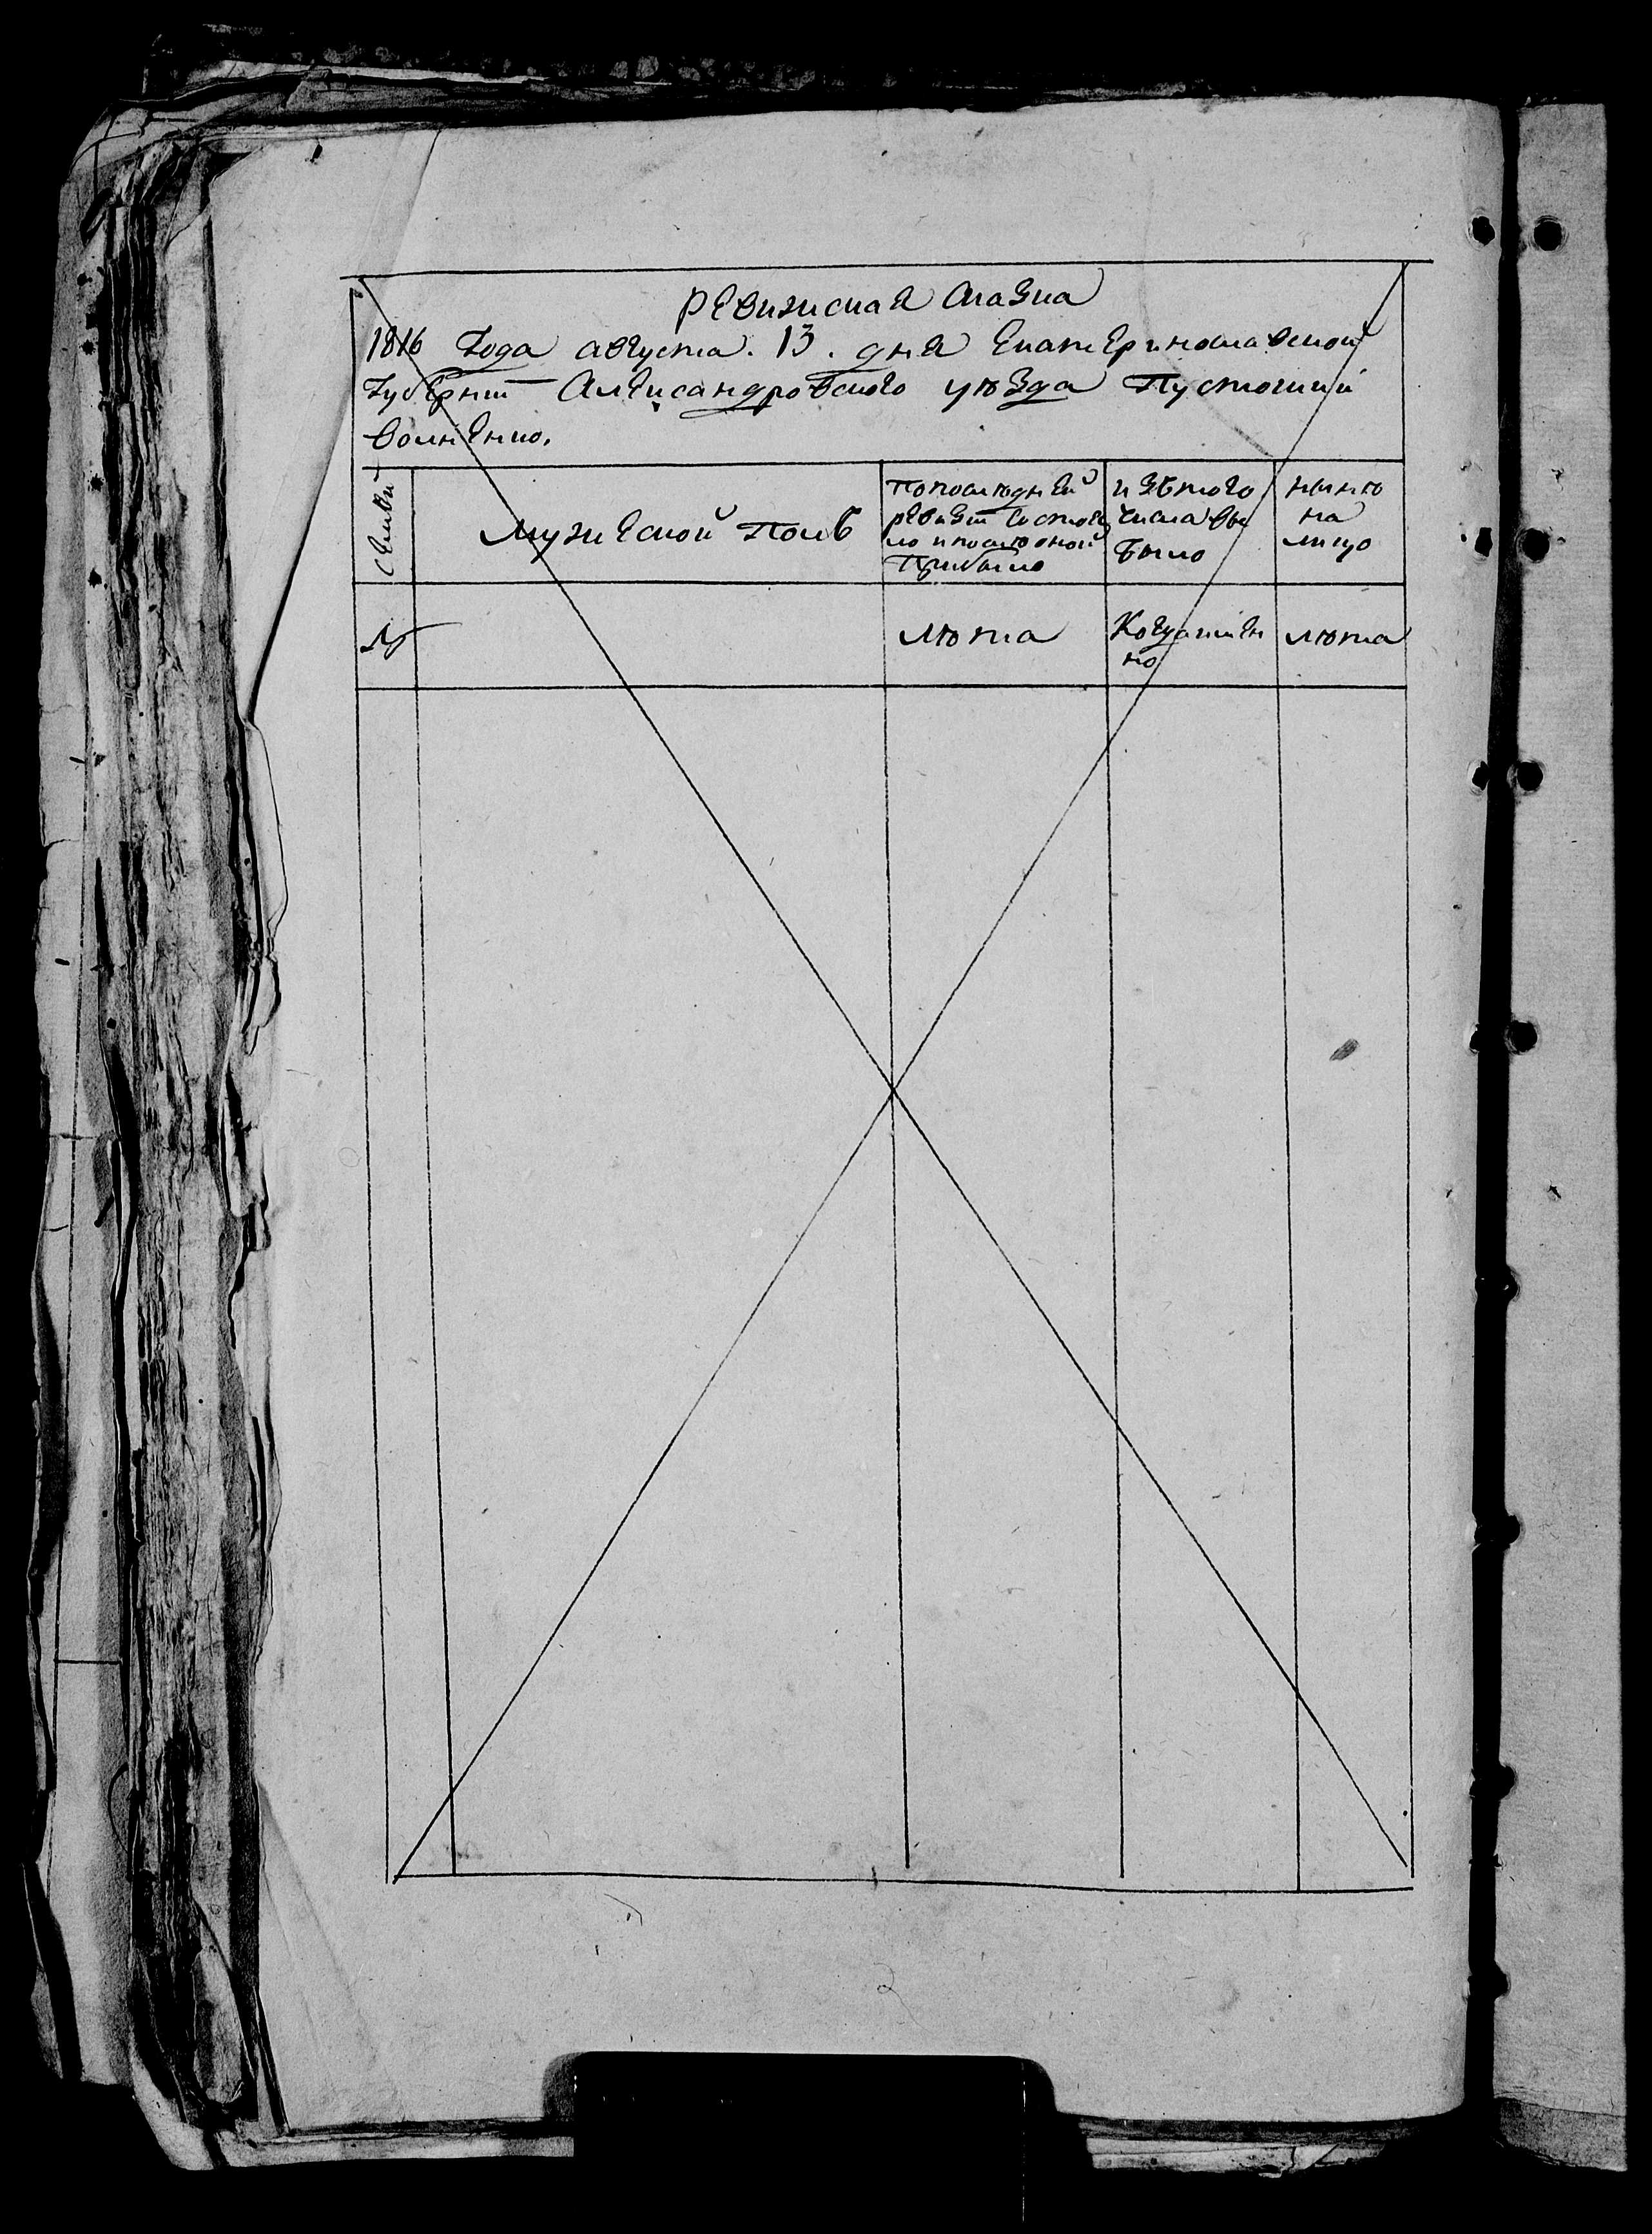 ревижская сказка
1816 года августа. 13. дня Екатеринославской
губерніи Александровского уѣзда
семьи
мужеской полъ
По последней
ревизіи состояло
и после оной
Прибыло
изъ того
числа вы
было
нынѣ
на
лицо
№
лѣта
Когда имен
но
лѣта